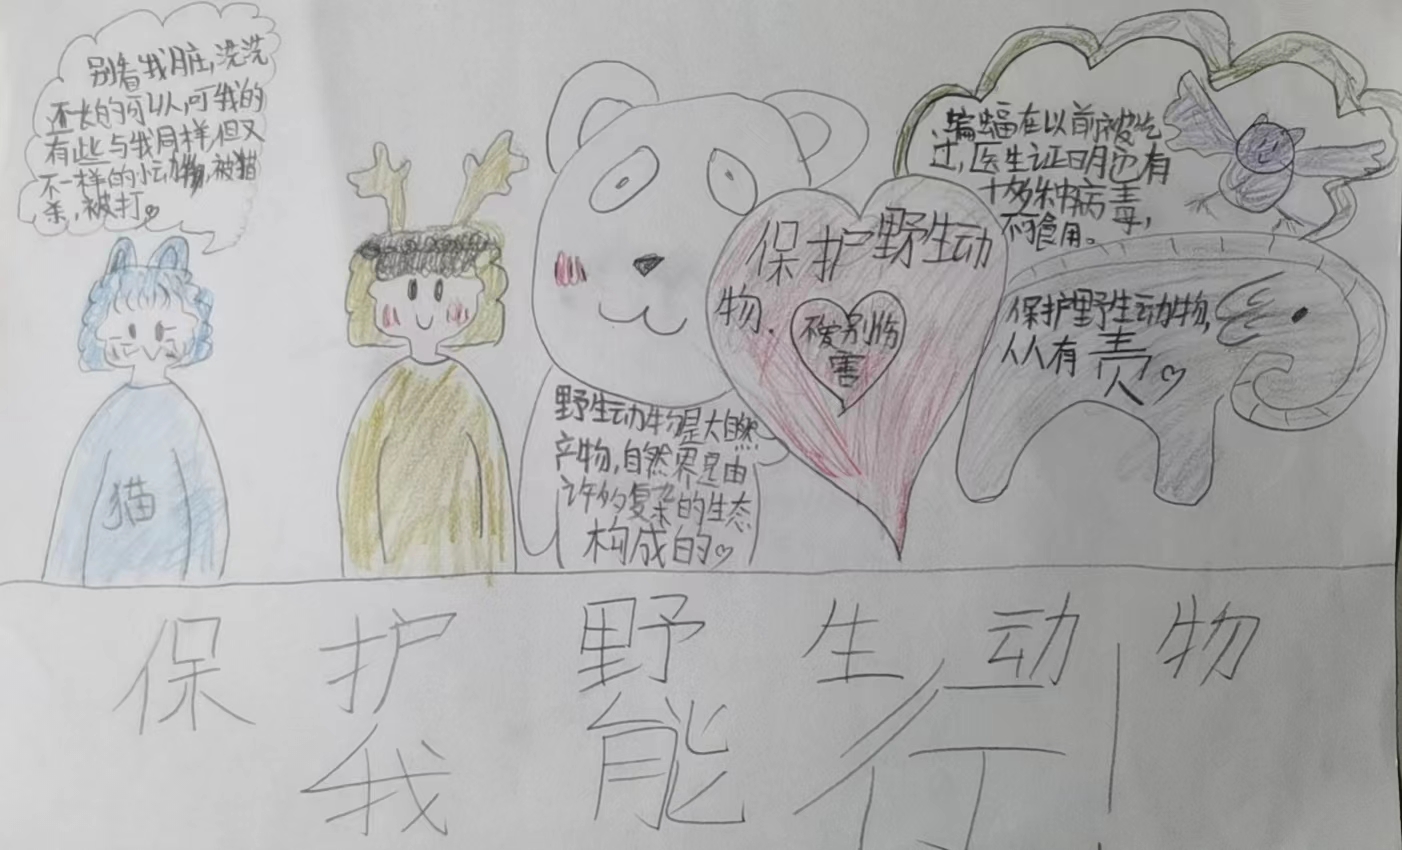 别看我脏,洗洗
还长的可以人,可我的
有些与我同样但又
不一样的小动物,被猫
杀,被打。
猫
野生动物是大自然
产物,自然界是由
许多复杂的生态
构成的
保护野生动
物、
不要别伤
害
蝙蝠在以前被吃
过,医生证明也有
十多种病毒,
不可食用。
保护野生动物,
人人有责
保护野生动物
我能行!